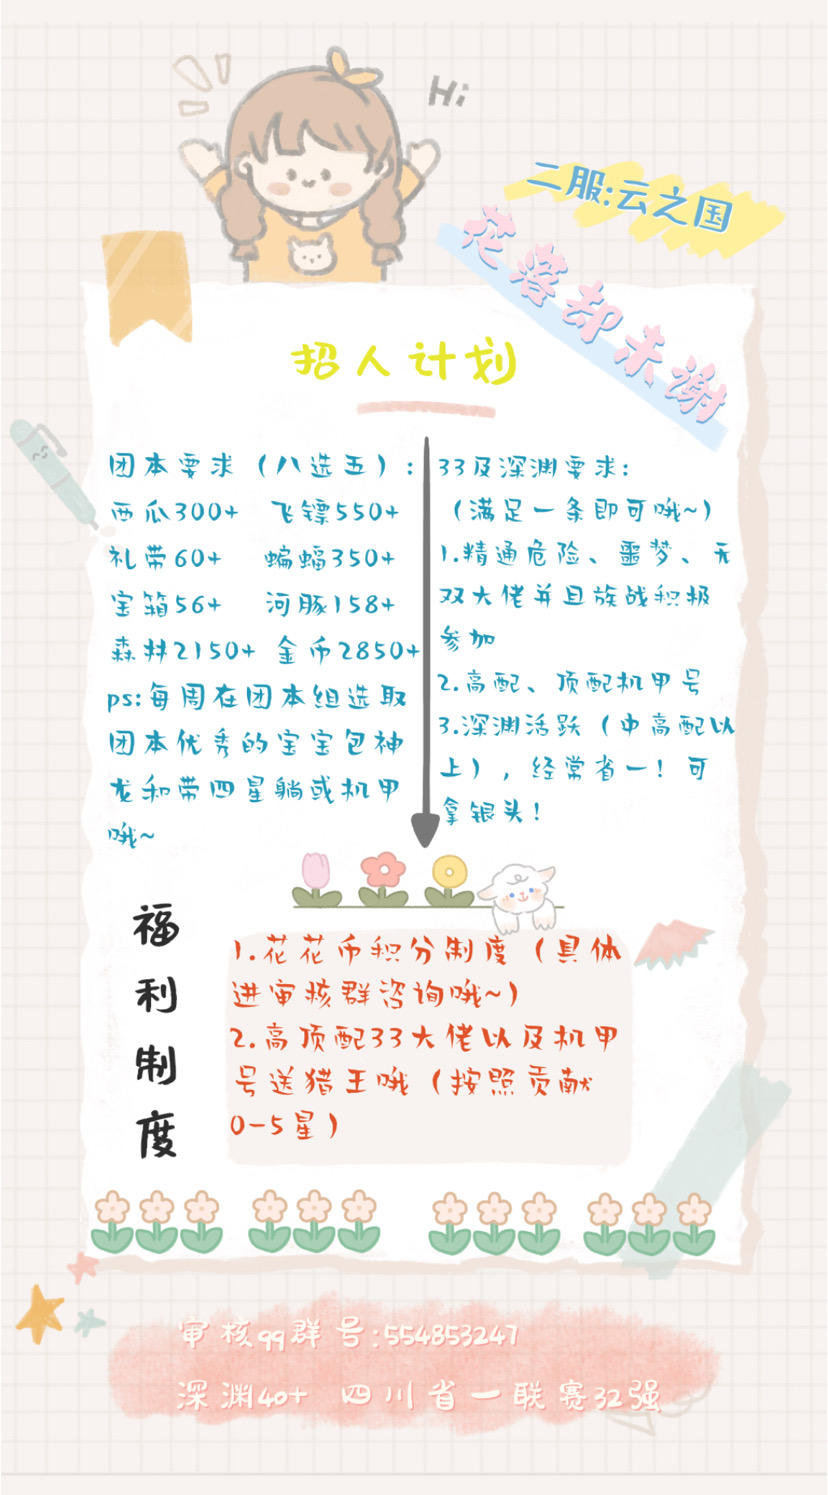 Hi
二服:云之国
花落却未谢
招人计划
团本要求（八选五）:
西瓜300+ 飞镖550+
礼带60+ 蝙蝠350+
宝箱56+ 河豚158+
森林2150+ 金币2850+
ps:每周在团本组选取
团本优秀的宝宝包神
龙和带四星躺或机甲
哦~
33及深渊要求:
（满足一条即可哦~）
1.精通危险、噩梦、无
双大佬并且族战积极
参加
2.高配、顶配机甲号
3.深渊活跃（中高配以
上），经常省一！可
拿银头！
福利制度
1.花花币积分制度（具体
进审核群咨询哦~）
2.高顶配33大佬以及机甲
号送猎王哦（按照贡献
0-5星）
审核qq群号:554853247
深渊40+ 四川省一联赛32强